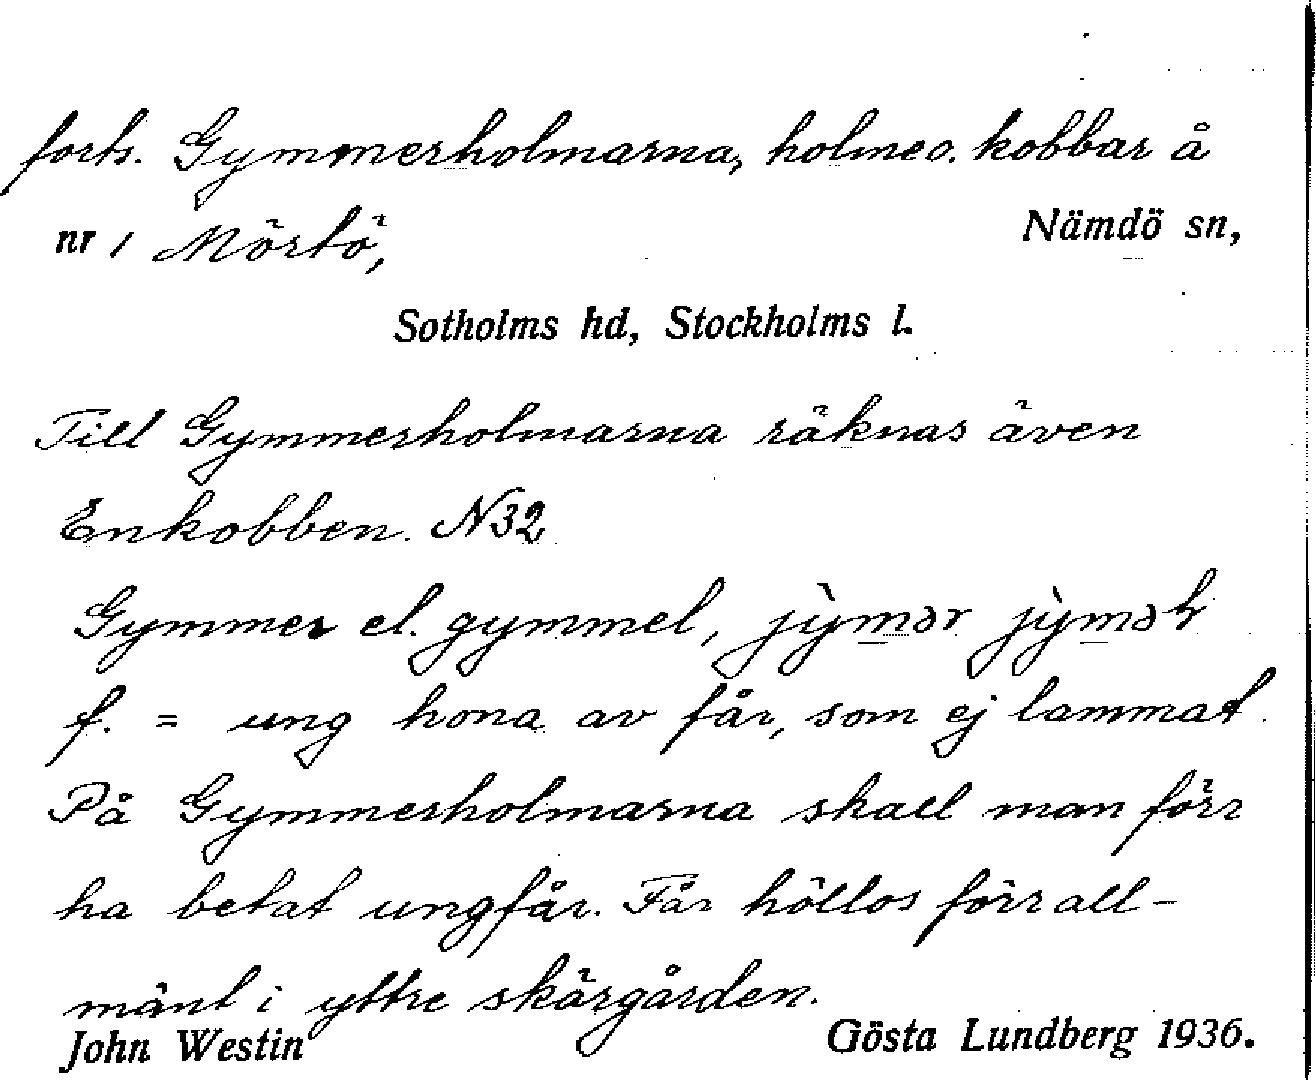 forts. Gymmerholmarna, holme o. kobbar å
nr 1 Mörtö, Nämdö sn,
Sotholms hd, Stockholms l.
Till Gymmerholmarna räknas även
Enkobben. N32
Gymmer el. gymmel, jỳmər jỳməɫ
f. = ung hona av får, som ej lammat.
På Gymmerholmarna skall man förr
ha betat ungfår. Får höllos förr all-
mänt i yttre skärgården.
John Westin Gösta Lundberg 1936.